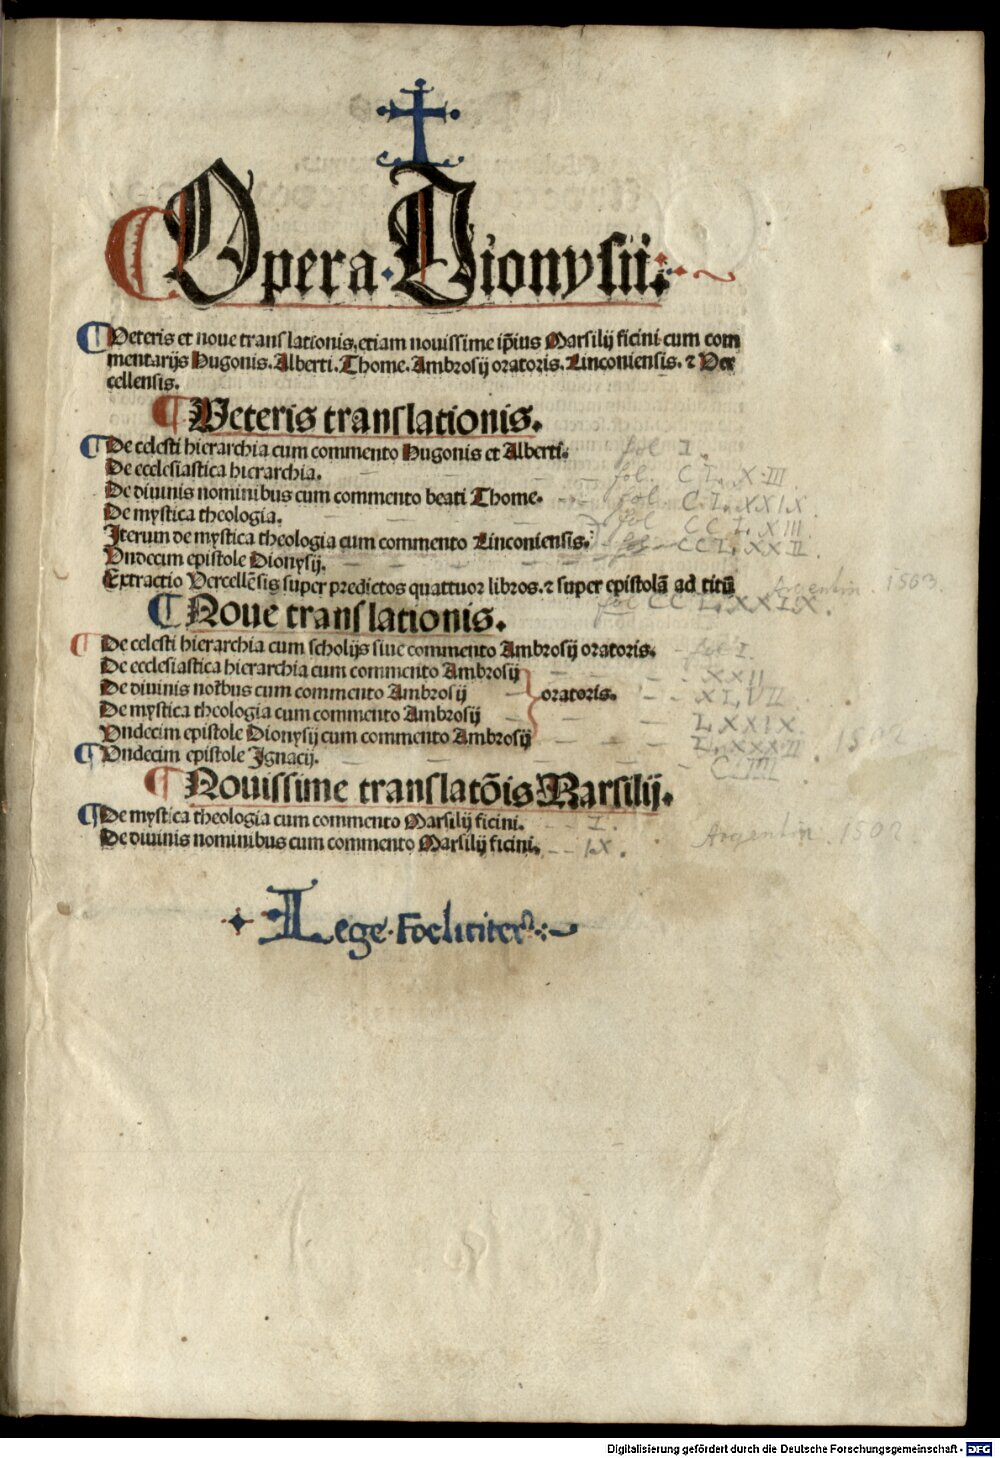 Opera Dionysii.
Veteris et noue translationis, etiam nouissime ip̄ius Marsilij ficini cum com
mentarijs Hugonis. Alberti. Thome. Ambrosij oratoris. Linconiensis. ⁊ Ver
cellensis.
Veteris translationis.
De celesti hierarchia cum commento Hugonis et Alberti. fol I.
De ecclesiastica hierarchia. fol. C L. X III
De diuinis nominibus cum commento beati Thome. fol C. L. XXIX
De mystica theologia. fol CC L. XIII
Iterum de mystica theologia cum commento Linconiensis. fol CC L. XX II.
Vndecim epistole Dionysij.
Extractio Vercellēsis super predictos quattuor libros. ⁊ super epistolā ad titū Argentin 1503.
fol CC L. XX IX.
Noue translationis.
De celesti hierarchia cum scholijs siue commento Ambrosij oratoris. fol I.
De ecclesiastica hierarchia cum commento Ambrosij XXII
De diuinis noībus cum commento Ambrosij oratoris. XL VII
De mystica theologia cum commento Ambrosij L XXIX.
Vndecim epistole Dionysij cum commento Ambrosij L. XXX II 1502
Vndecim epistole Ignacij. C. IIII
Nouissime translatōis Marsilij.
De mystica theologia cum commento Marsilij ficini. I.
De diuinis nominibus cum commento Marsilij ficini. IX. Argentin. 1502
Lege Foeliciter
Digitalisierung gefördert durch die Deutsche Forschungsgemeinschaft - DFG